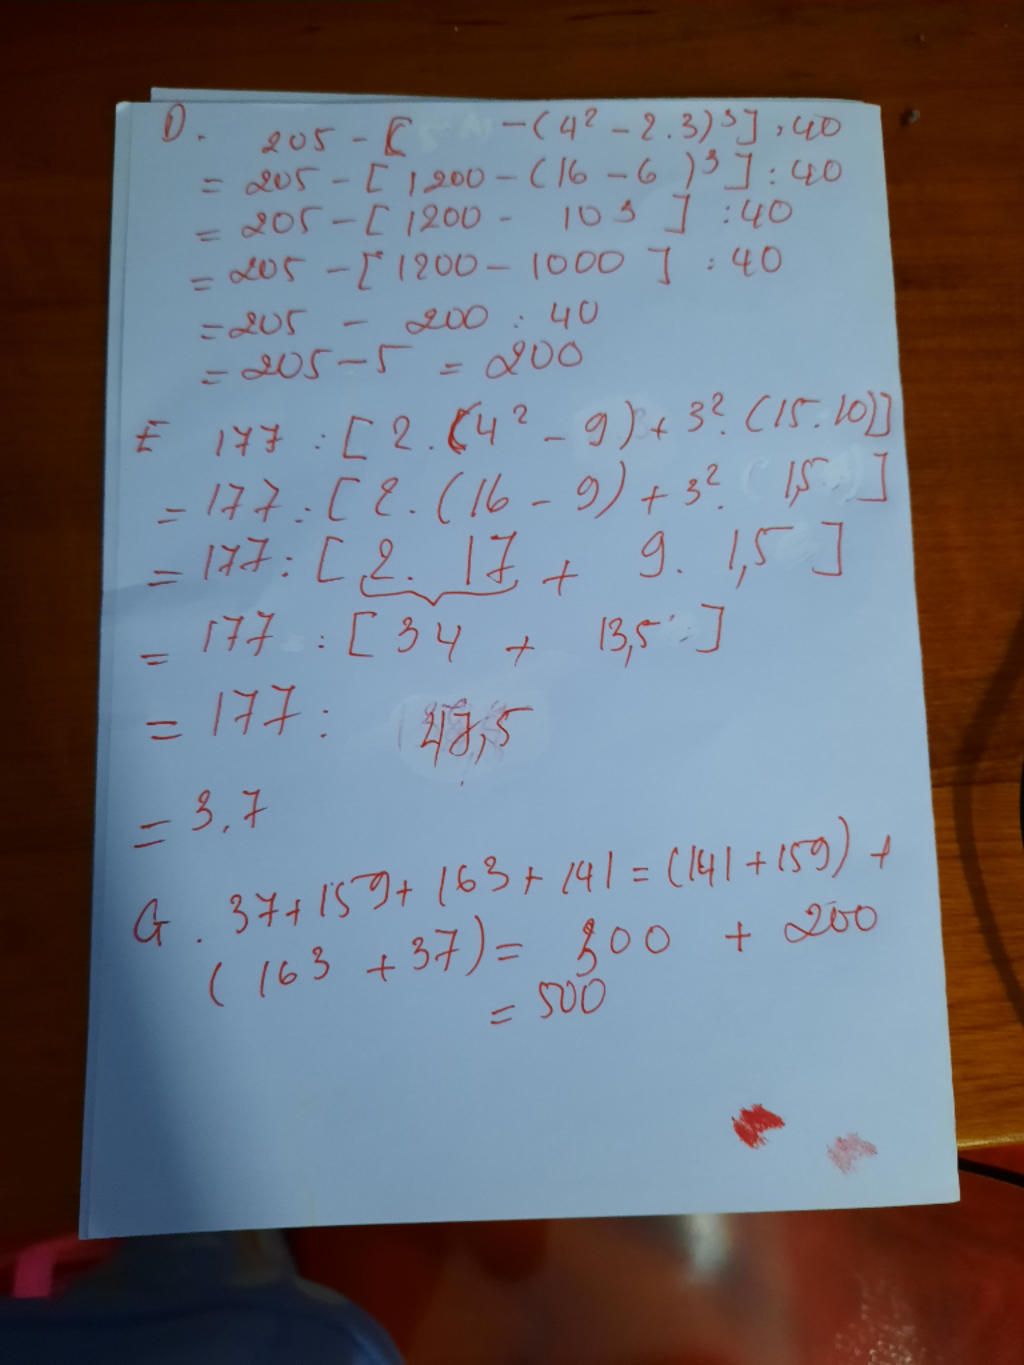 D. 205 - [ - (4² - 2.3)³] : 40
= 205 - [ 1200 - (16 - 6 )³ ] : 40
= 205 - [ 1200 - 10³ ] : 40
= 205 - [ 1200 - 1000 ] : 40
= 205 - 200 : 40
= 205 - 5 = 200
E 177 : [ 2. (4² - 9) + 3². (15.10)]
= 177 : [ 2. (16 - 9) + 3². 1,5 ]
= 177 : [ 2. 17 + 9. 1,5 ]
= 177 : [ 34 + 13,5 ]
= 177 : 47,5
= 3.7
G. 37 + 159 + 163 + 141 = (141 + 159) +
(163 + 37) = 300 + 200
= 500